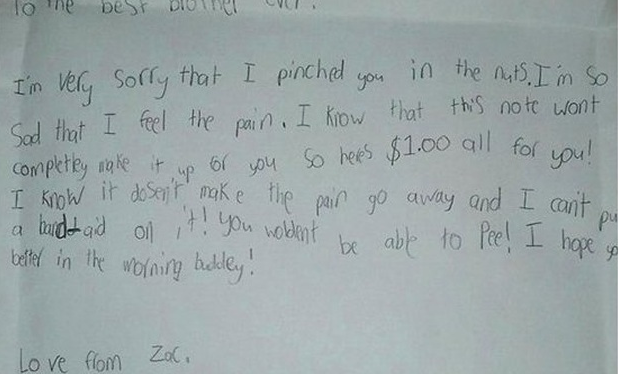 To the best brother ever.
I'm very sorry that I pinched you in the nuts. I'm so
sad that I feel the pain. I know that this note wont
completley make it up for you so here's $1.00 all for you!
I know it dosen't make the pain go away and I can't pu
a band-aid on it! You woldent be able to Pee! I hope yo
better in the morning buddey!
Love from Zac.